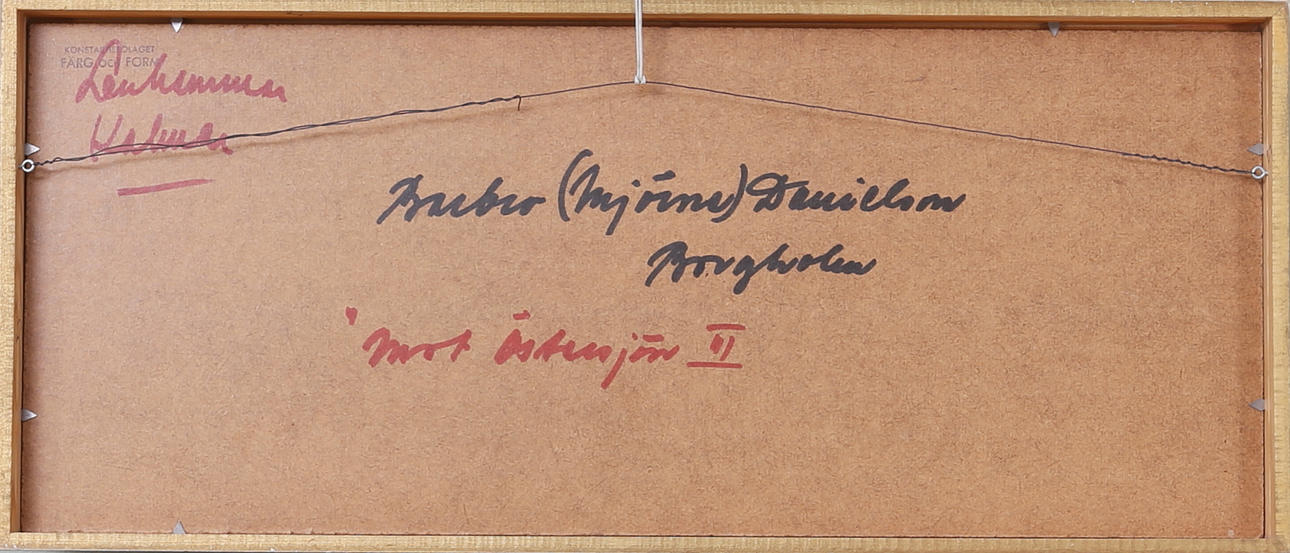 KONSTAKTIEBOLAGET
FÄRG och FORM
Lenhammar
Kalmar
Barbro (Mjörne) Danielson
Borgholm
"Mot Östersjön II